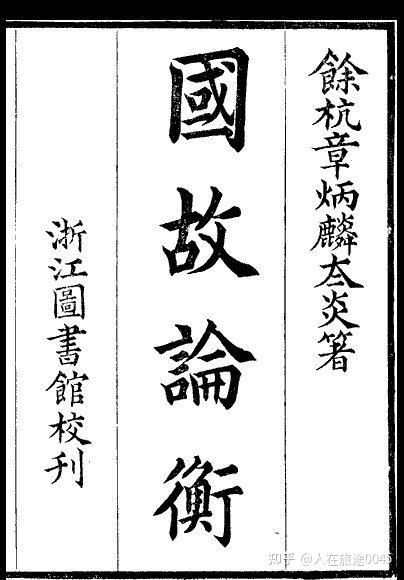 餘杭章炳麟夳炎箸
國故論衡
浙江圖書館校刊
知乎 @人在旅途0045